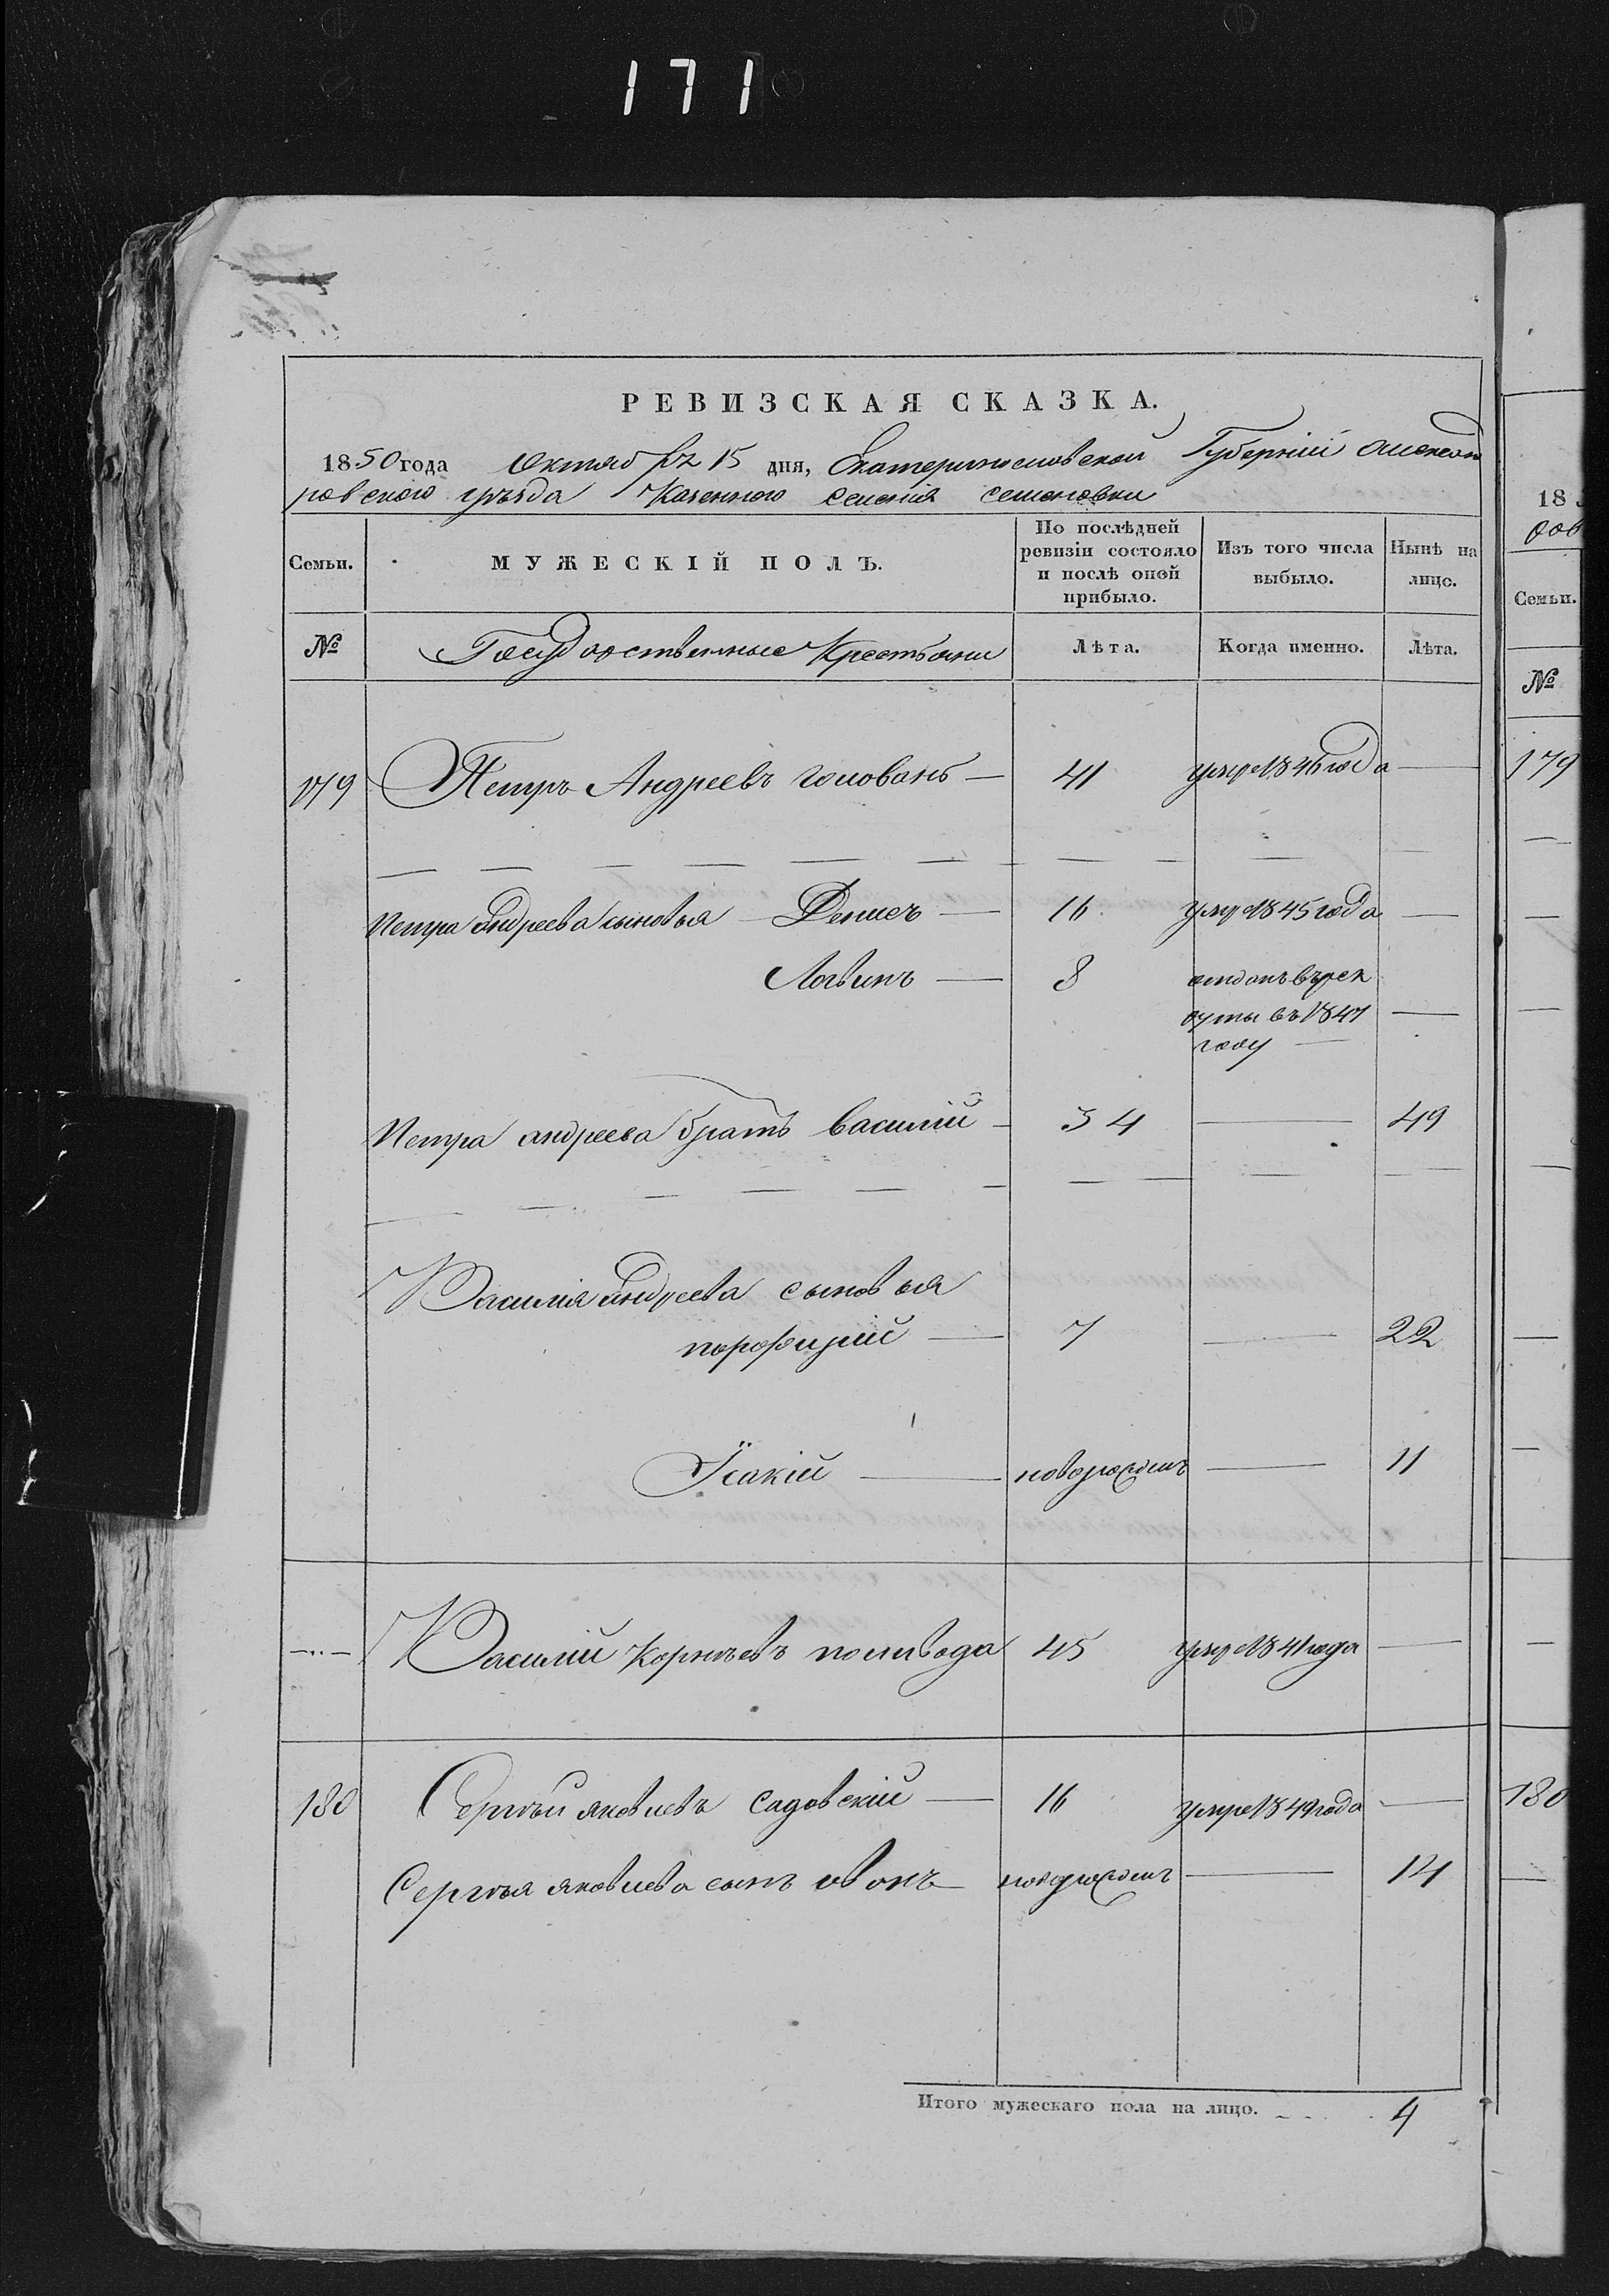 171
РЕВИЗСКАЯ СКАЗКА.
1850 года Октяб р. 15 дня, Екатеринославской Губерніи Александ
ровского уѣзда Казенного селенія семеновки
Семьи.
МУЖЕСКІЙ ПОЛЪ.
По послѣдней
ревизіи состояло
и послѣ оной
прибыло.
Изъ того числа
выбыло.
Нынѣ на
лицо.
№
Государственные Крестьяни
Лѣта.
Когда именно.
Лѣта.
179 Петръ Андреевъ голованъ — 41 умре 1846 года —
Петра андреева сыновья — Денисъ — 16 умре 1845 года —
Логвинъ — 8 отданъ въ рек
руты въ 1847 —
году —
Петра андреева братъ василій — 34 — 49
Василия андреева сыновья
порфирій — 7 — 22
Їсакій — новорожденъ — 11
Василий Корнѣевъ поливода 45 умре 1841 года —
180 Сергѣй яковлевъ садовскій — 16 умре 1849 года —
Сергѣя яковлева сынъ иванъ — новорожденъ — 14
Итого мужескаго пола на лицо. 4
18
Семьи.
№
179
180